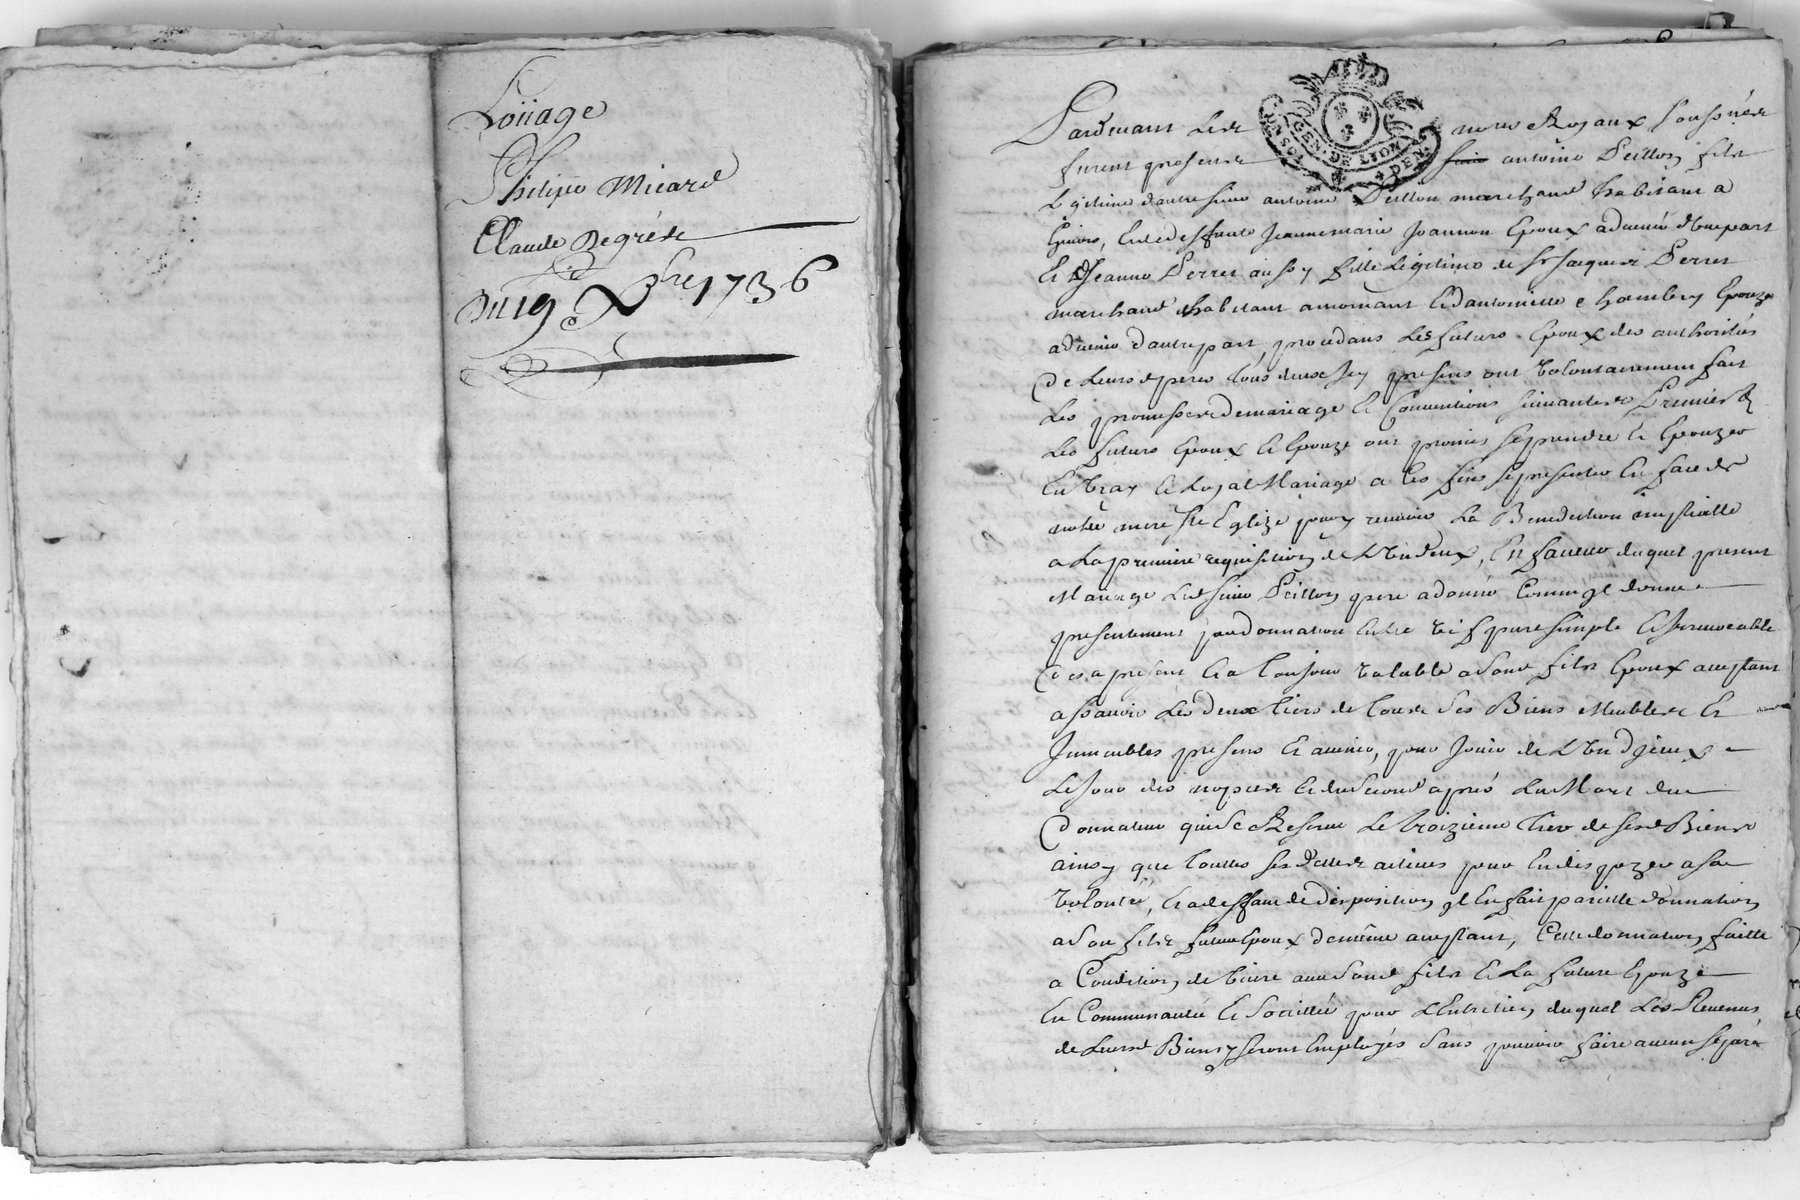 Loüage
Philipe Micard
Claude Degréde
Du 19 Xbre 1736
GEN. DE LYON
Pardevant Les notes Royaux soussnés
furent presents antoine Peillon fils
Legitime dautre sieur antoine Peillon marchand habitant a
Givors, Et de deffunte Jeanne marie Joannon Epoux advenir d'une part
Et Jeanne Perret aussy fille Legitime de sr Jacques Perret
marchand habitant a mornant Et d'antoinette chambry Epouze
advenir d'autre part, procedans Les futurs Epoux des authorités
de Leurs peres tous deux Icy presens ont volontairement fait
Les promesses de mariage Et Conventions suivantes Premier
Les futurs Epoux Et Epouze ont promis se prendre Et Epouzer
En vray Et Loyal Mariage a ces fins se presenter En face de
notre mere ste Eglize pour y recevoir La Benediction nuptialle
a La premiere requisition de L'un d'eux, En faveur duquel present
Mariage Led sieur Peillon pere a donné Comme Jl donne
presentement par donnation Entre vifs pure simple Et Jrrevocable
des a present Et a toujours valable a Sond fils Epoux acceptant
a sçavoir Les deux tiers de tous Ses Biens Meubles Et
Jmmeubles presens Et avenir, pour Jouir de L'un d'jceux
Le Jour des nopces Et du Second aprés La Mort du
donnateur qui Se Reserve Le troizieme tiers de sesd Biens
ainsy que toutes ses dettes actives pour En dispozer a sa
volonté, Et a deffaut de disposition Jl En fait pareille donnation
a Son fils futur Epoux de même acceptant, Cette donnation faitte
a Condition de vivre avec Sond fils Et La future Epouze
En Communauté Et Société pour L'Entretien duquel Les Revenus
de Leursd Biens y seront Employés Sans pouvoir faire aucun separé